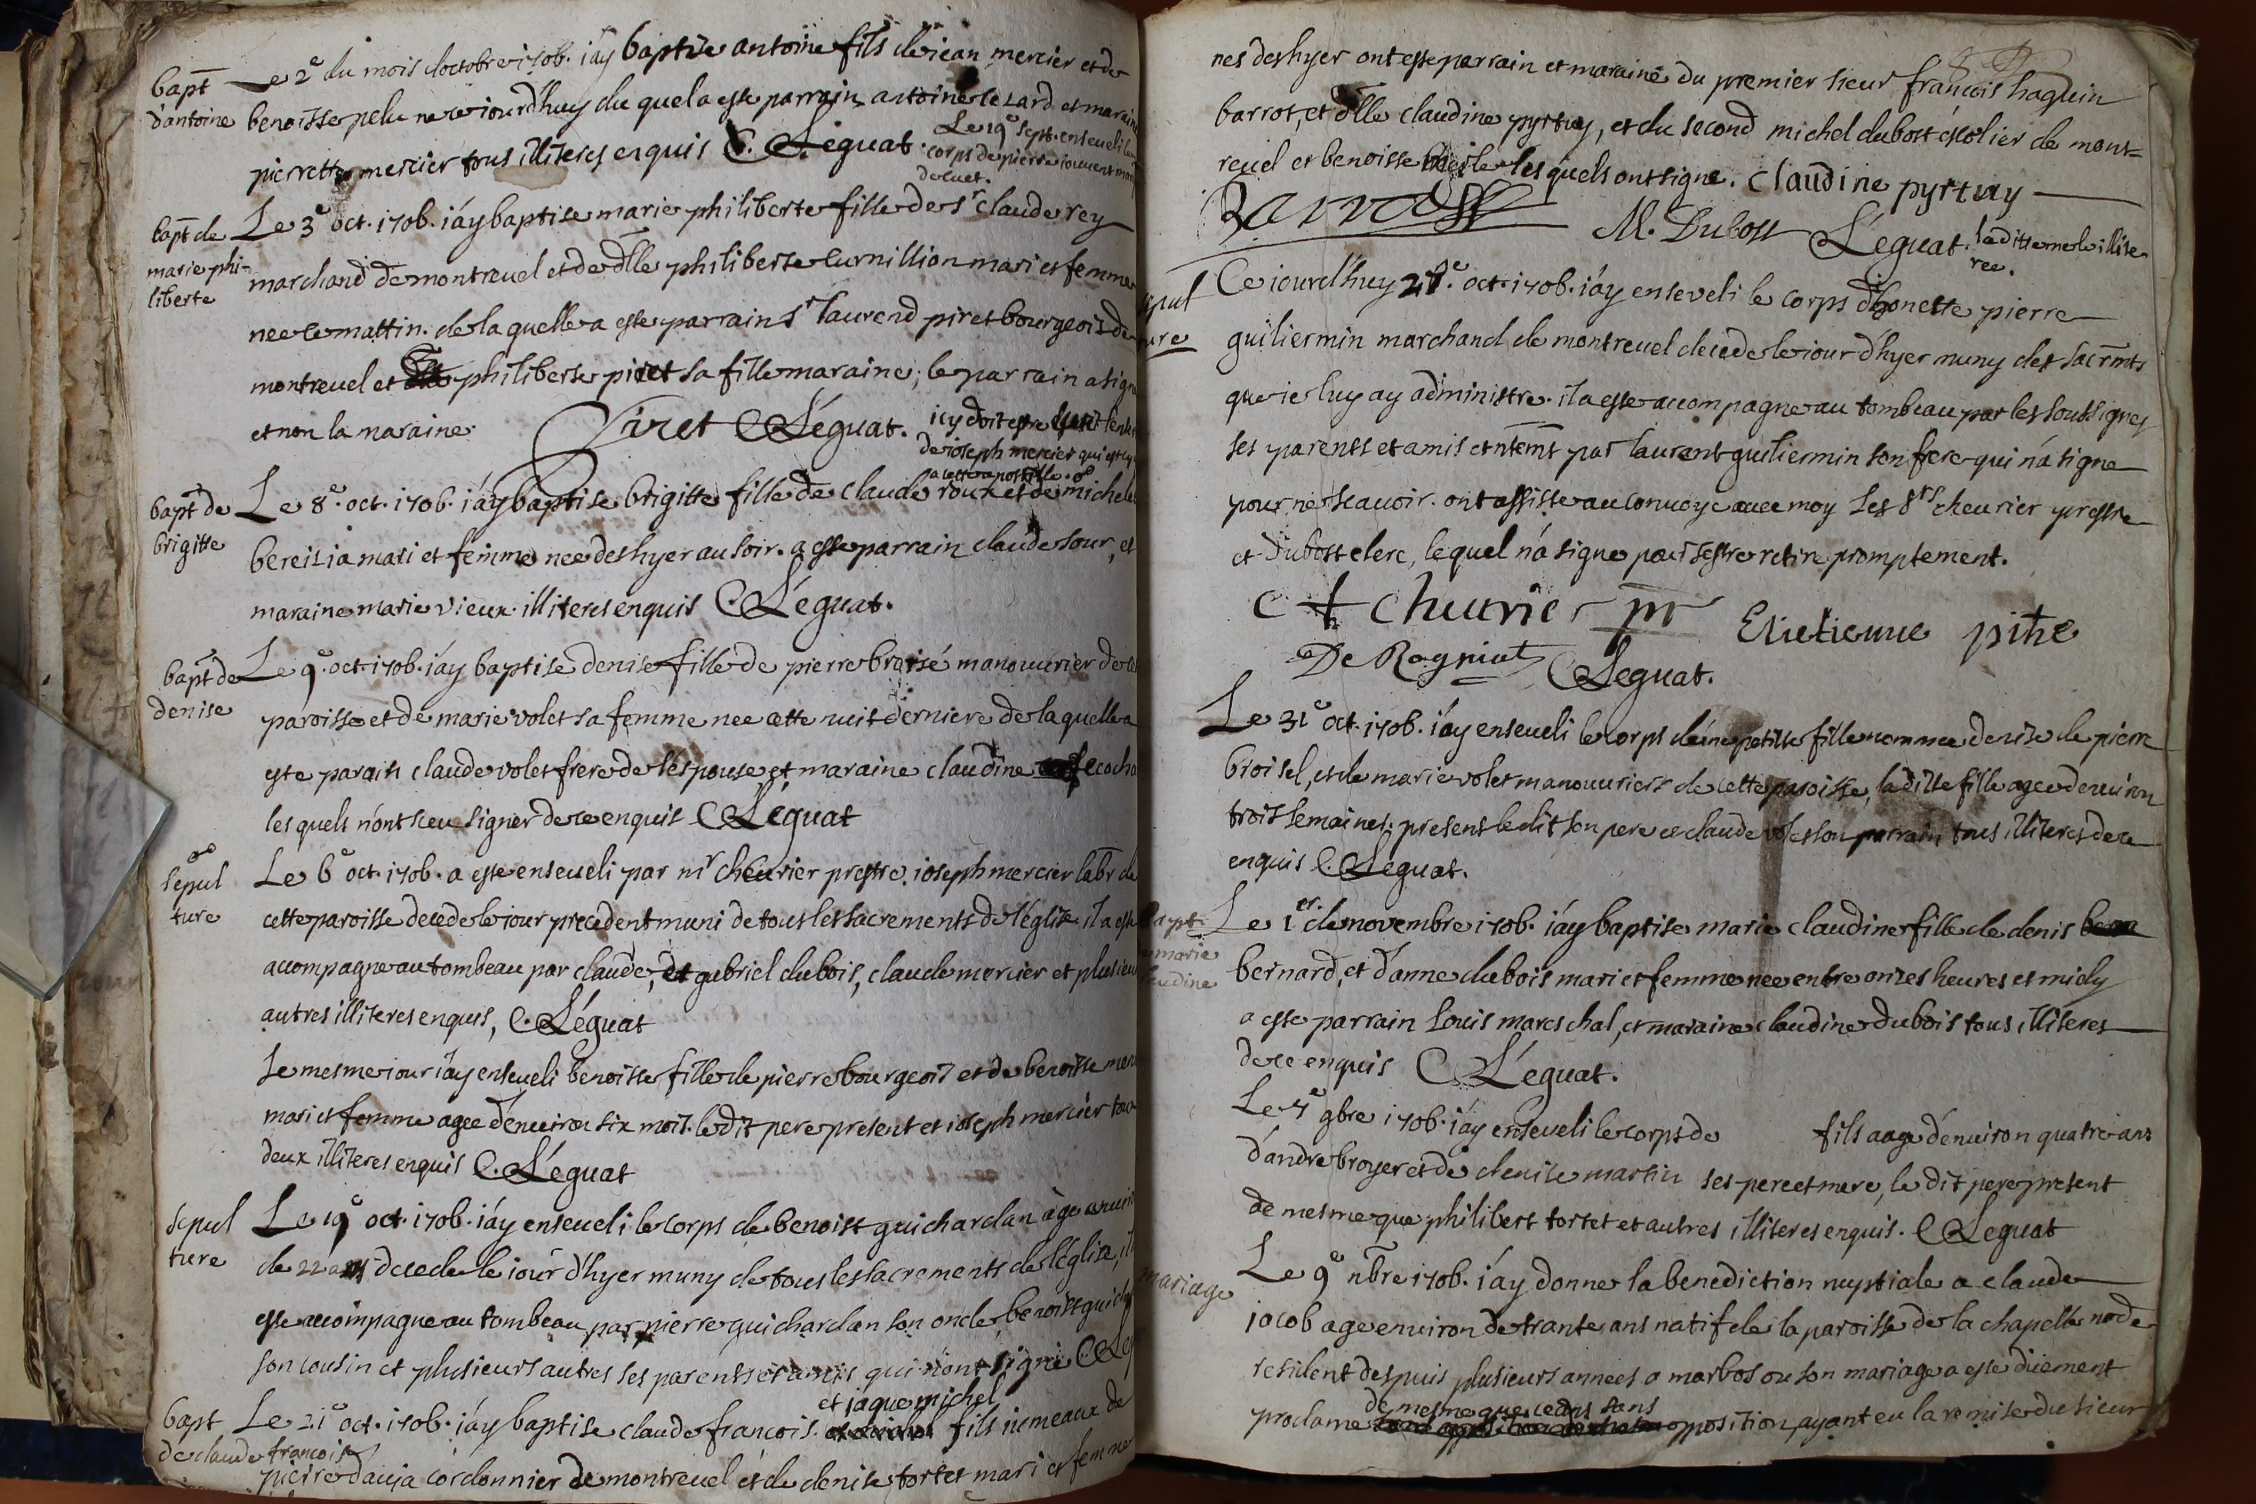 bapt
d'antoine
Le 2e du mois doctobre 1706. iáy baptise antoine fils de iean mercier et de
benoisse pelu ne ce iourd'huy du quel a este parrain antoine letard et maraine
pierrette mercier tous illiteres enquis C. Léguat.
Le 19e sept. enseveli le
corps de pierre iouvent mort
bapt de
marie phi-
liberte
Le 3e oct. 1706. iáy baptise marie philiberte fille de sr claude rey
marchand de montrevel et de dlle philiberte Curnillion mari et femme
nee ce mattin. de la quelle a este parrain sr laurend piret bourgeois de
montrevel et philiberte piret sa fille maraine; le parrain a signe
et non la maraine. Piret C. Léguat.
icy doit estre
de ioseph mercier qui est cy
a cette apostille
bapt de
brigitte
Le 8e. oct. 1706. iáy baptise brigitte fille de claude roux et de michele
bereilia mari et femme nee deshyer au soir. a este parrain claude sour, et
maraine marie vieux. illiteres enquis C. Léguat.
bapt de
denise
Le 9e. oct. 1706. iáy baptise denise fille de pierre broisé manouvrier de cette
paroisse et de marie volet sa femme nee cette nuit derniere de la quelle a
este parain claude volet frere de lespouse et maraine claudine
les quels n'ont sceu signer de ce enquis C. Léguat
sepul
ture
Le 6e oct. 1706. a este enseveli par mr chevrier prestre ioseph mercier labr de
cette paroisse decede le iour precedent muni de tous les sacrements de léglise, il a este
accompagne au tombeau par claude, et gabriel dubois, claude mercier et plusieurs
autres illiteres enquis, C. Léguat
Le mesme iour iáy enseveli benoisse fille de pierre bourgeois et de benoisse
mari et femme agee denviron six mois. le dit pere present et ioseph mercier tous
deux illiteres enquis C. Léguat
sepul
ture
Le 19e oct. 1706. iáy enseveli le corps de benoist guichardan àge environ
de 22 ans decede le iour d'hyer muny de tous les sacrements de léglise, il a
este accompagne au tombeau par pierre guichardan son oncle, benoist
son cousin et plusieurs autres ses parents et amis qui n'ont signé C. Leguat
bapt
de claude francois
et iaque michel
Le 21e oct. 1706. iáy baptise claude francois fils iumeaux de
pierre dauja cordonnier de montrevel et de denise tortet mari et femme
nes deshyer ont este parrain et maraine du premier sieur francois haquin
barrot, et dlle claudine pyrtuy, et du second michel dubost écolier de mont-
revel et benoisse les quels ont signe. Claudine pyrtuy
Barrot
M. Dubost Léguat. la ditte merle illite
ree.
sepul
ture
Ce iourd'huy 21e. oct. 1706. iáy enseveli le corps d'honeste pierre
guiliermin marchand de montrevel decede le iour d'hyer muny des sacrmts
que ie luy ay administre. il a este accompagne au tombeau par les soubsignes
ses parents et amis et ntemt par laurent guiliermin son frere qui n'a signe
pour ne scavoir. ont assiste au convoye avec moy les srs chevrier prestre
et dubost clerc, lequel n'a signe pour sestre retire promptement.
chevrier pr Etietienne pithe
De Rogniat C. Leguat.
Le 31e oct. 1706. iáy enseveli le corps dúne petitte fille nommee denise de pierre
broisel, et de marie volet manouvriers de cette paroisse, la ditte fille agee denviron
trois semaines. present le dit son pere et claude volet son parrain tous illiteres de ce
enquis C. Léguat.
bapt
marie
claudine
Le 1er. de novembre 1706. iáy baptise marie claudine fille de denis
bernard, et d'anne dubois mari et femme nee entre onzes heures et midy
a este parrain Louis mareschal, et maraine claudine dubois tous illiteres
de ce enquis C. Léguat.
Le 7e gbre 1706. iáy enseveli le corps de fils aage dénviron quatre ans
d'andre broyer et de denise martin ses pere et mere, le dit pere present
de mesme que philibert tortet et autres illiteres enquis. C. Leguat
mariage
Le 9e nbre 1706. iáy donne la benediction nuptiale a claude
iacob age environ de trante ans natif de la paroisse de la chapelle node
resident despuis plusieurs annees a marbos ou son mariage a este düement
de mesme que ceans sans
proclame opposition, ayant eu la remise du sieur